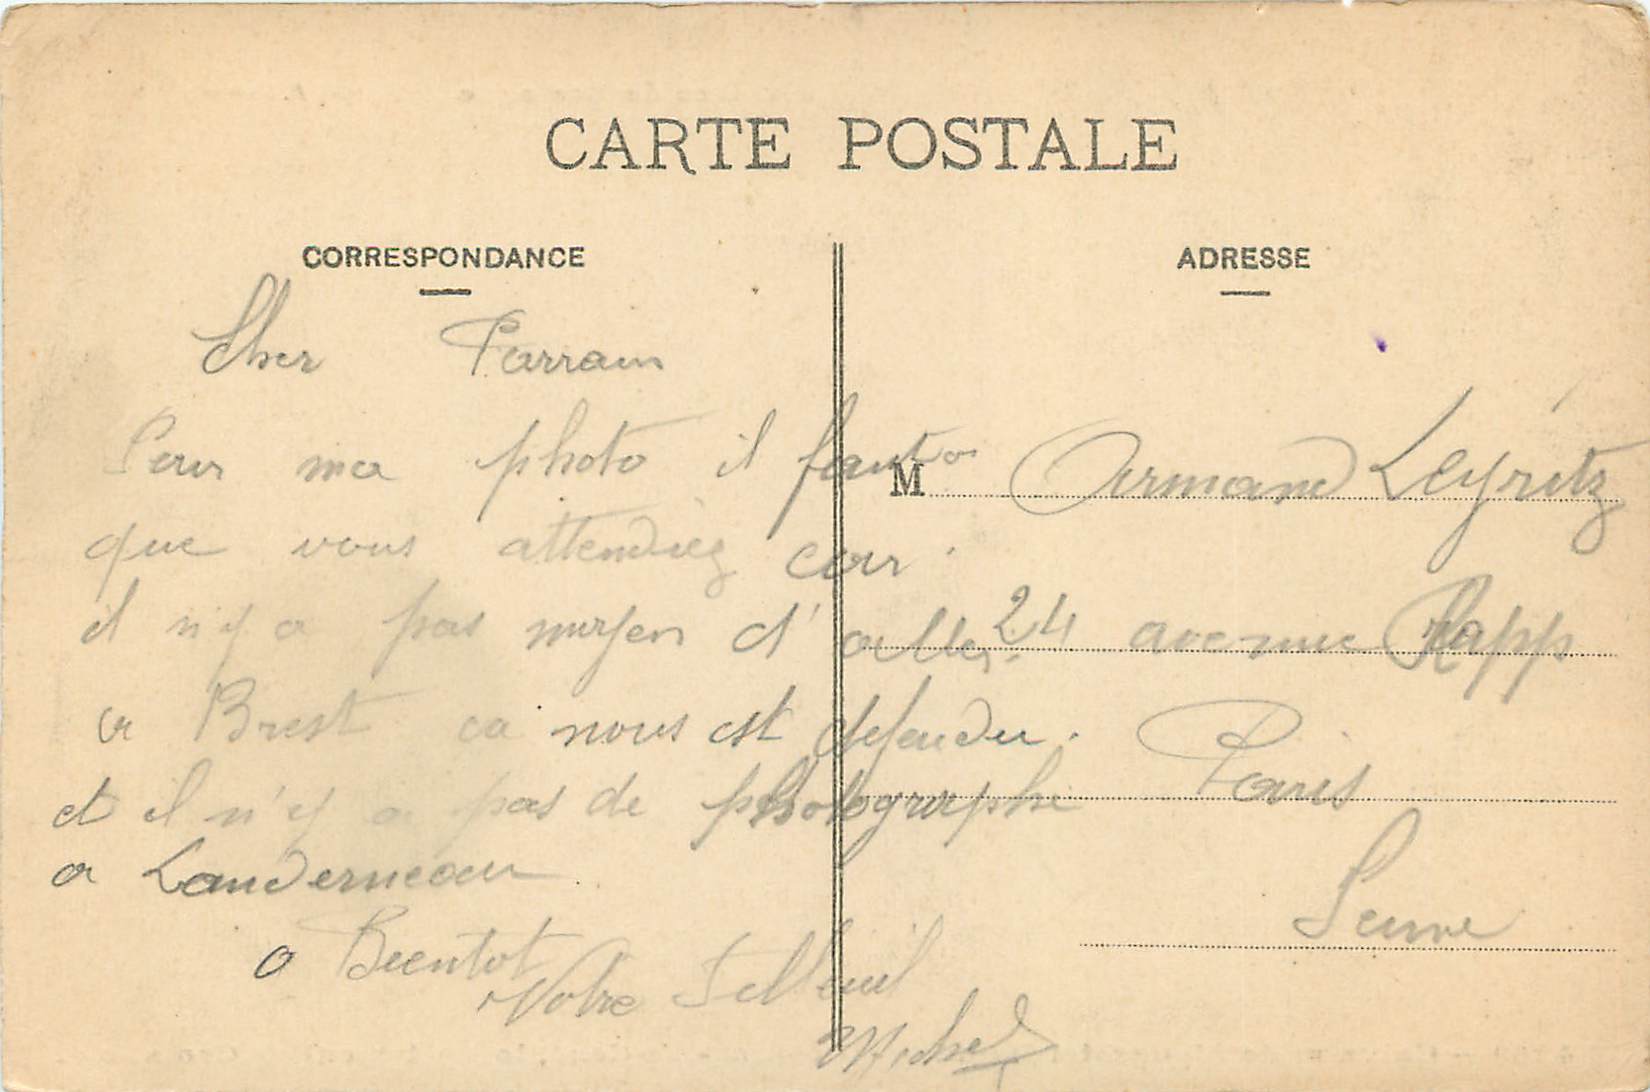 CARTE POSTALE
CORRESPONDANCE
Cher Parrain
Pour ma photo il faut
que vous attendiez car
il n'y a pas moyen d'aller
a Brest ca nous est defendu.
et il n'y a pas de photographe
a Landerneau
a Bientot
Votre Filleuil
Michel
ADRESSE
M Armand Leyritz
24 avenue Rapp
Paris
Seine